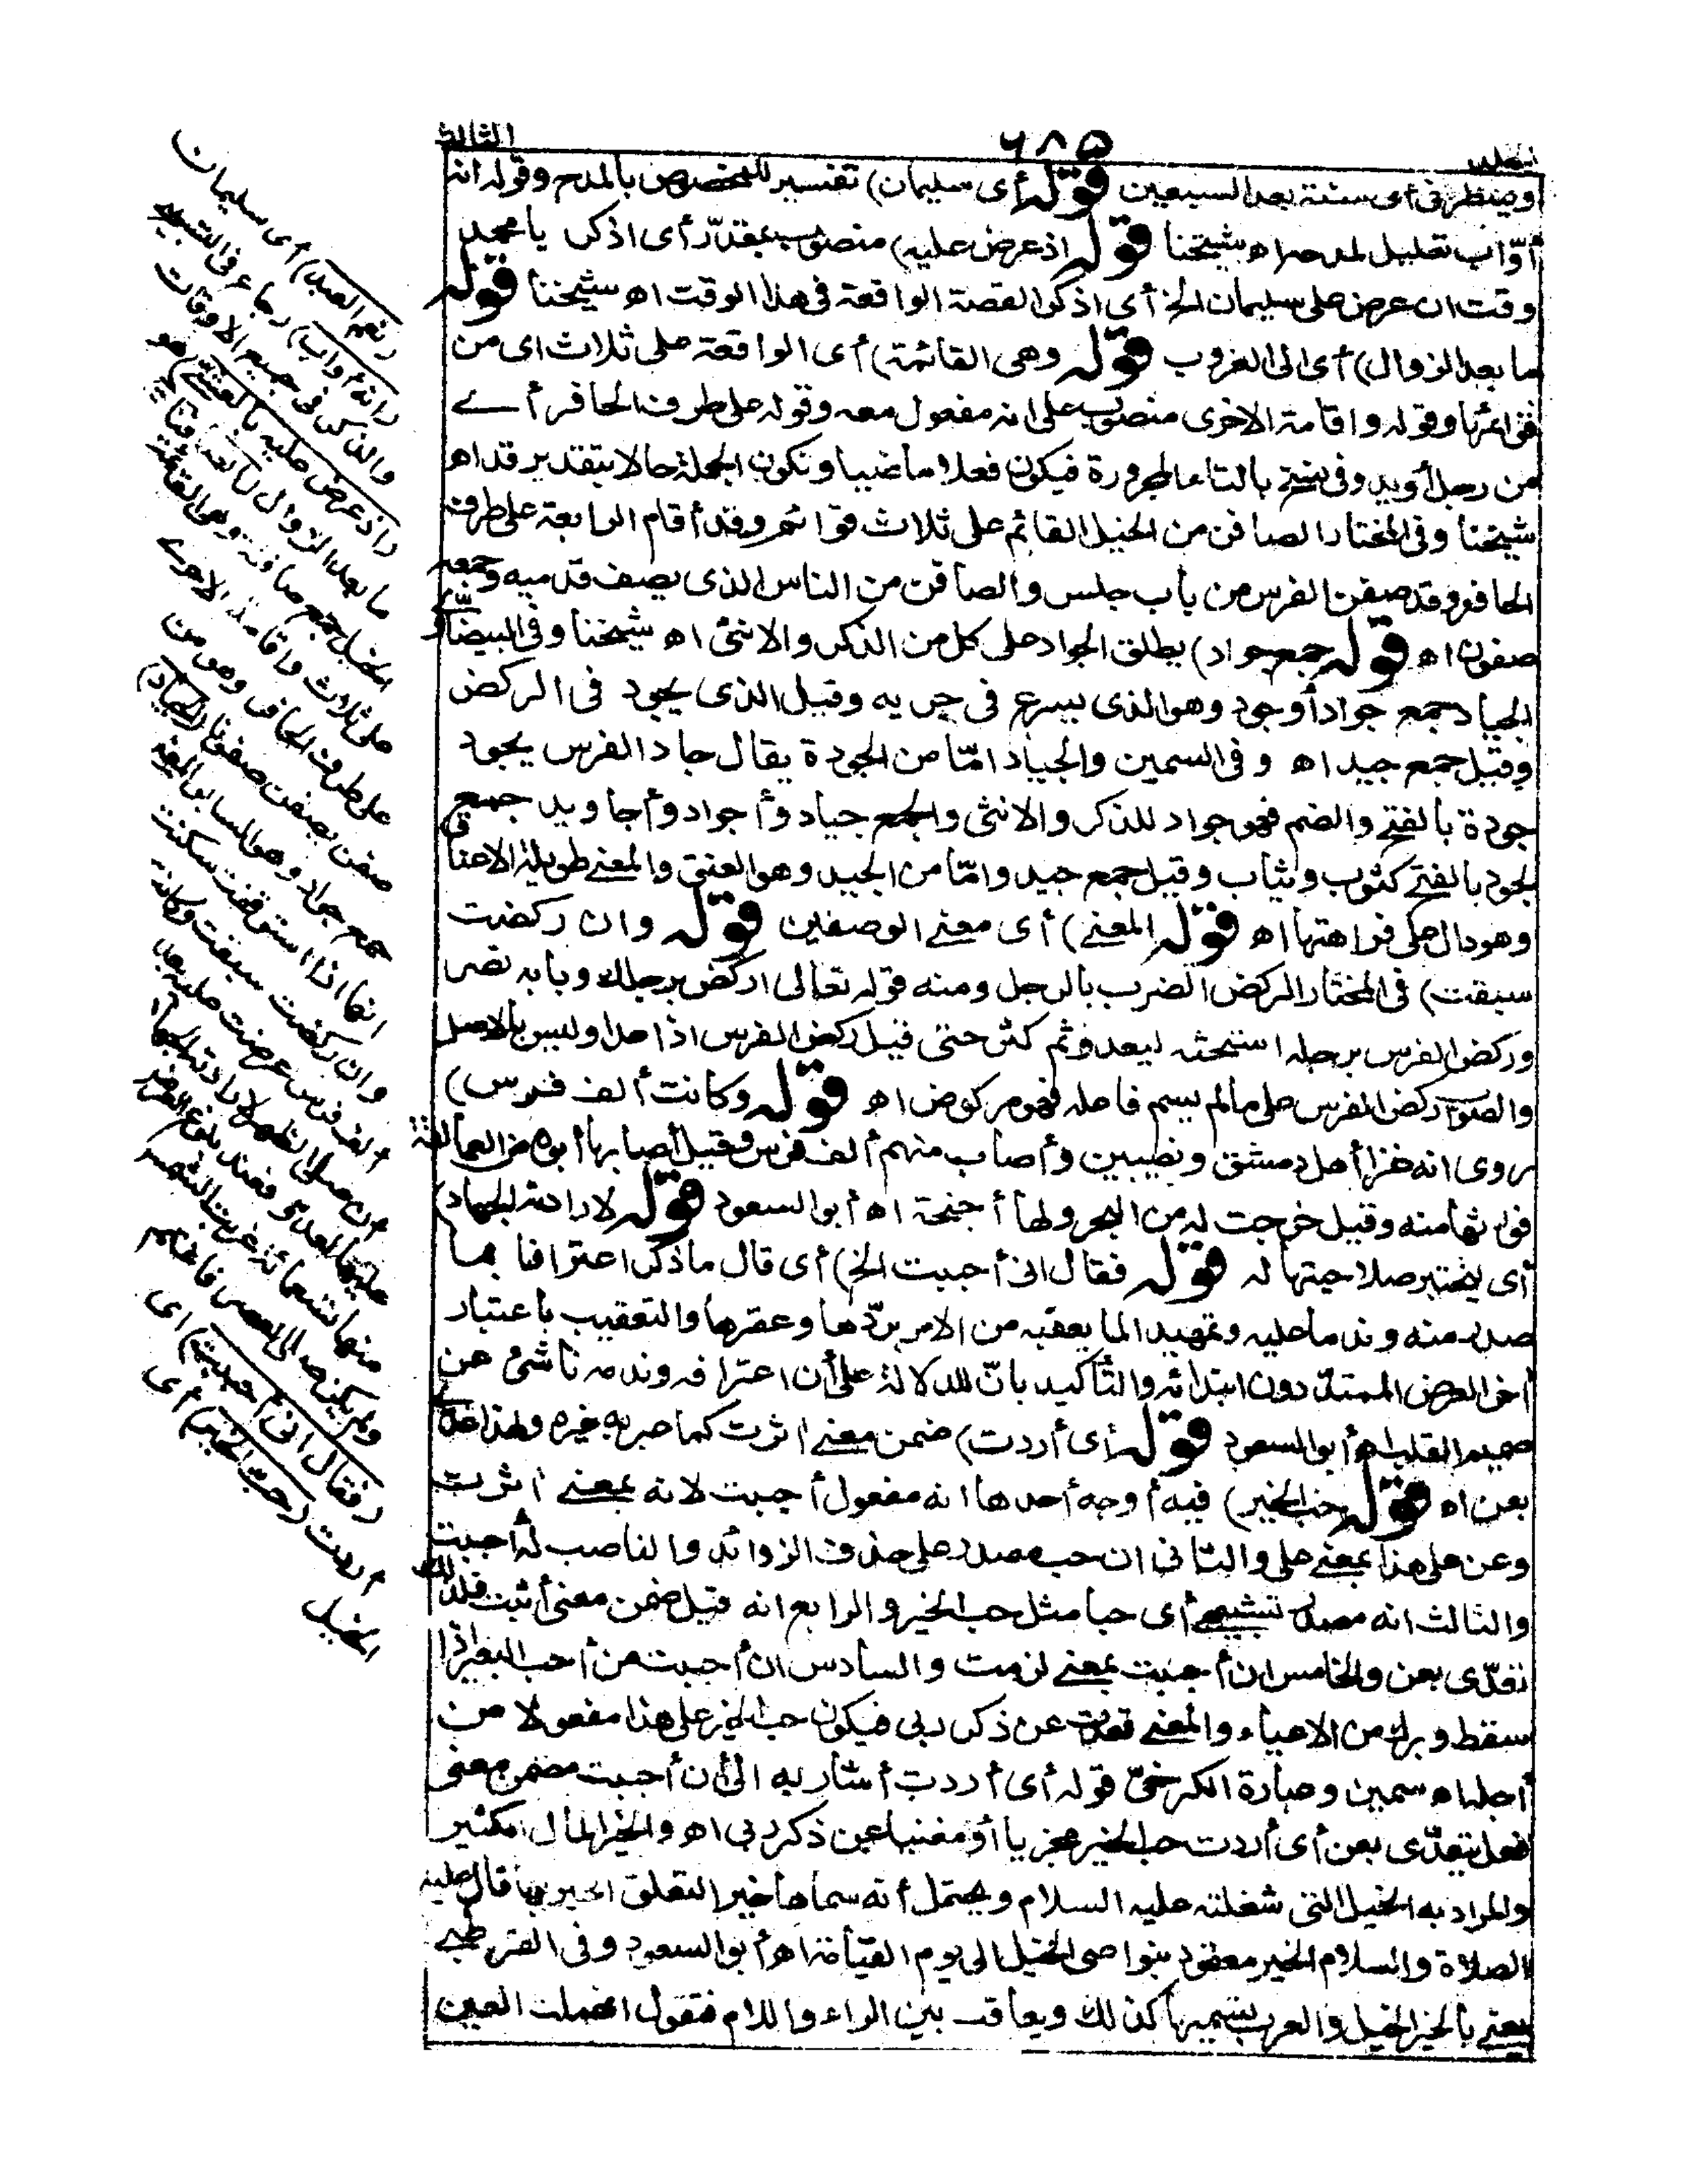 الثالث
٦٨٥
وينظر في أي سنة بعد السبعين قوله أي سليمان) تفسير للمخصوص بالمدح وقوله انه
أوّاب تعليل لمدحه اه شيخنا قوله اذ عرض عليه) منصوب بمقدّر أى اذكر يا محمد
وقت ان عرض على سليمان الخ أى اذكر القصة الواقعة فى هذا الوقت اه شيخنا قوله
ما بعد الزوال) أى الى الغروب قوله وهى القائمة) أى الواقعة على ثلاث اى من
قوائمها وقوله واقامة الاخرى منصوب على انه مفعول معه وقوله على طرف الحافر أى
من رجل أو يد وفى نسخة بالتاء المجرورة فيكون فعلا ماضيا وتكون الجملة حالا بتقدير قد اه
شيخنا وفى المختار الصافن من الخيل القائم على ثلاث قوائم وقد أقام الرابعة على طرف
الحافر وقد صفن الفرس من باب جلس والصافن من الناس الذى يصف قدميه وجمعه
صفون اه قوله جمع جواد) يطلق الجواد على كل من الذكر والانثى اه شيخنا وفى البيضاوى
الجياد جمع جواد أو جود وهو الذى يسرع فى جريه وقيل الذى يجود فى الركض
وقيل جمع جيد اه وفى السمين والجياد امّا من الجودة يقال جاد الفرس يجود
جودة بالفتح والضم فهو جواد للذكر والانثى والجمع جياد وأجواد وأجاويد جمع
لجود بالفتح كثوب وثياب وقيل جمع جيد وامّا من الجيد وهو العنق والمعنى طويلة الاعناق
وهو دال على فراهتها اه قوله المعنى) أى معنى الوصفين قوله وان ركضت
سبقت) فى المختار الركض الضرب بالرجل ومنه قوله تعالى اركض برجلك وبابه نصر
وركض الفرس برجله استحثه ليعدو ثم كثر حتى قيل ركض الفرس اذا عدا وليس بالاصل
والصواب ركض الفرس على ما لم يسم فاعله فهو مركوض اه قوله وكانت ألف فرس)
روى انه غزا أهل دمشق ونصيبين وأصاب منهم ألف فرس وقيل أصابها أبوه من العمالقة
فورثها منه وقيل خرجت له من البحر ولها أجنحة اه أبو السعود قوله لارادته الجهاد)
أى ليختبر صلاحيتها له قوله فقال انى أحببت الخ) أى قال ما ذكر اعترافا بما
صدر منه وندما عليه وتمهيدا لما يعقبه من الامر بردّها وعقرها والتعقيب باعتبار
أخر العرض الممتدّ دون ابتدائه والتأكيد بانّ للدلالة على أن اعترافه وندمه ناشئ عن
صميم القلب اه أبو السعود قوله أى أردت) ضمن معنى اثرت كما عبر به غيره ولهذا عدى
بعن اه قوله حب الخير) فيه أوجه أحدها انه مفعول أحببت لانه بمعنى اثرت
وعن على هذا بمعنى على والثانى ان حب مصدر على حذف الزوائد والناصب له أحببت
والثالث انه مصدر تشبيهى أى حبا مثل حب الخير والرابع انه قيل ضمن معنى أثبت فلذلك
تعدّى بعن والخامس ان أحببت بمعنى لزمت والسادس ان أحببت من أحب البعير اذا
سقط وبرك من الاعياء والمعنى قعدت عن ذكر ربى فيكون حب الخير على هذا مفعولا من
أجله اه سمين وعبارة الكرخىّ قوله أى أردت أشار به الى أن أحببت مضمن معنى
فعل يتعدّى بعن أى أردت حب الخير مجزيا أو مغنيا عن ذكر ربى اه والخير المال الكثير
والمراد به الخيل التى شغلته عليه السلام ويحتمل أنه سماها خيرا لتعلق الخير بها قال عليه
الصلاة والسلام الخير معقود بنواصى الخيل الى يوم القيامة اه أبو السعود وفى القرطبى
يعنى بالخير الخيل والعرب تسميها كذلك ويعاقب بين الراء واللام فتقول انهملت العين
(نعم العبد) أى سليمان
(انه أواب) رجاع فى التسبيح
والذكر فى جميع الاوقات
(اذ عرض عليه بالعشى) هو
ما بعد الزوال (الصافنات)
الخيل جمع صافنة وهى القائمة
على ثلاث واقامة الاخرى
على طرف الحافر وهو من
صفن يصفن صفونا (الجياد)
جمع جواد وهو السابق المعنى
انها اذا استوقفت سكنت
وان ركضت سبقت وكانت
ألف فرس عرضت عليه بعد
أن صلى الظهر لارادته الجهاد
عليها لعدو فعند بلوغ العرض
منها تسعمائة غربت الشمس
ولم يكن صلى العصر فاغتم
(فقال انى أحببت) اى
أردت (حب الخير) أى
الخيل